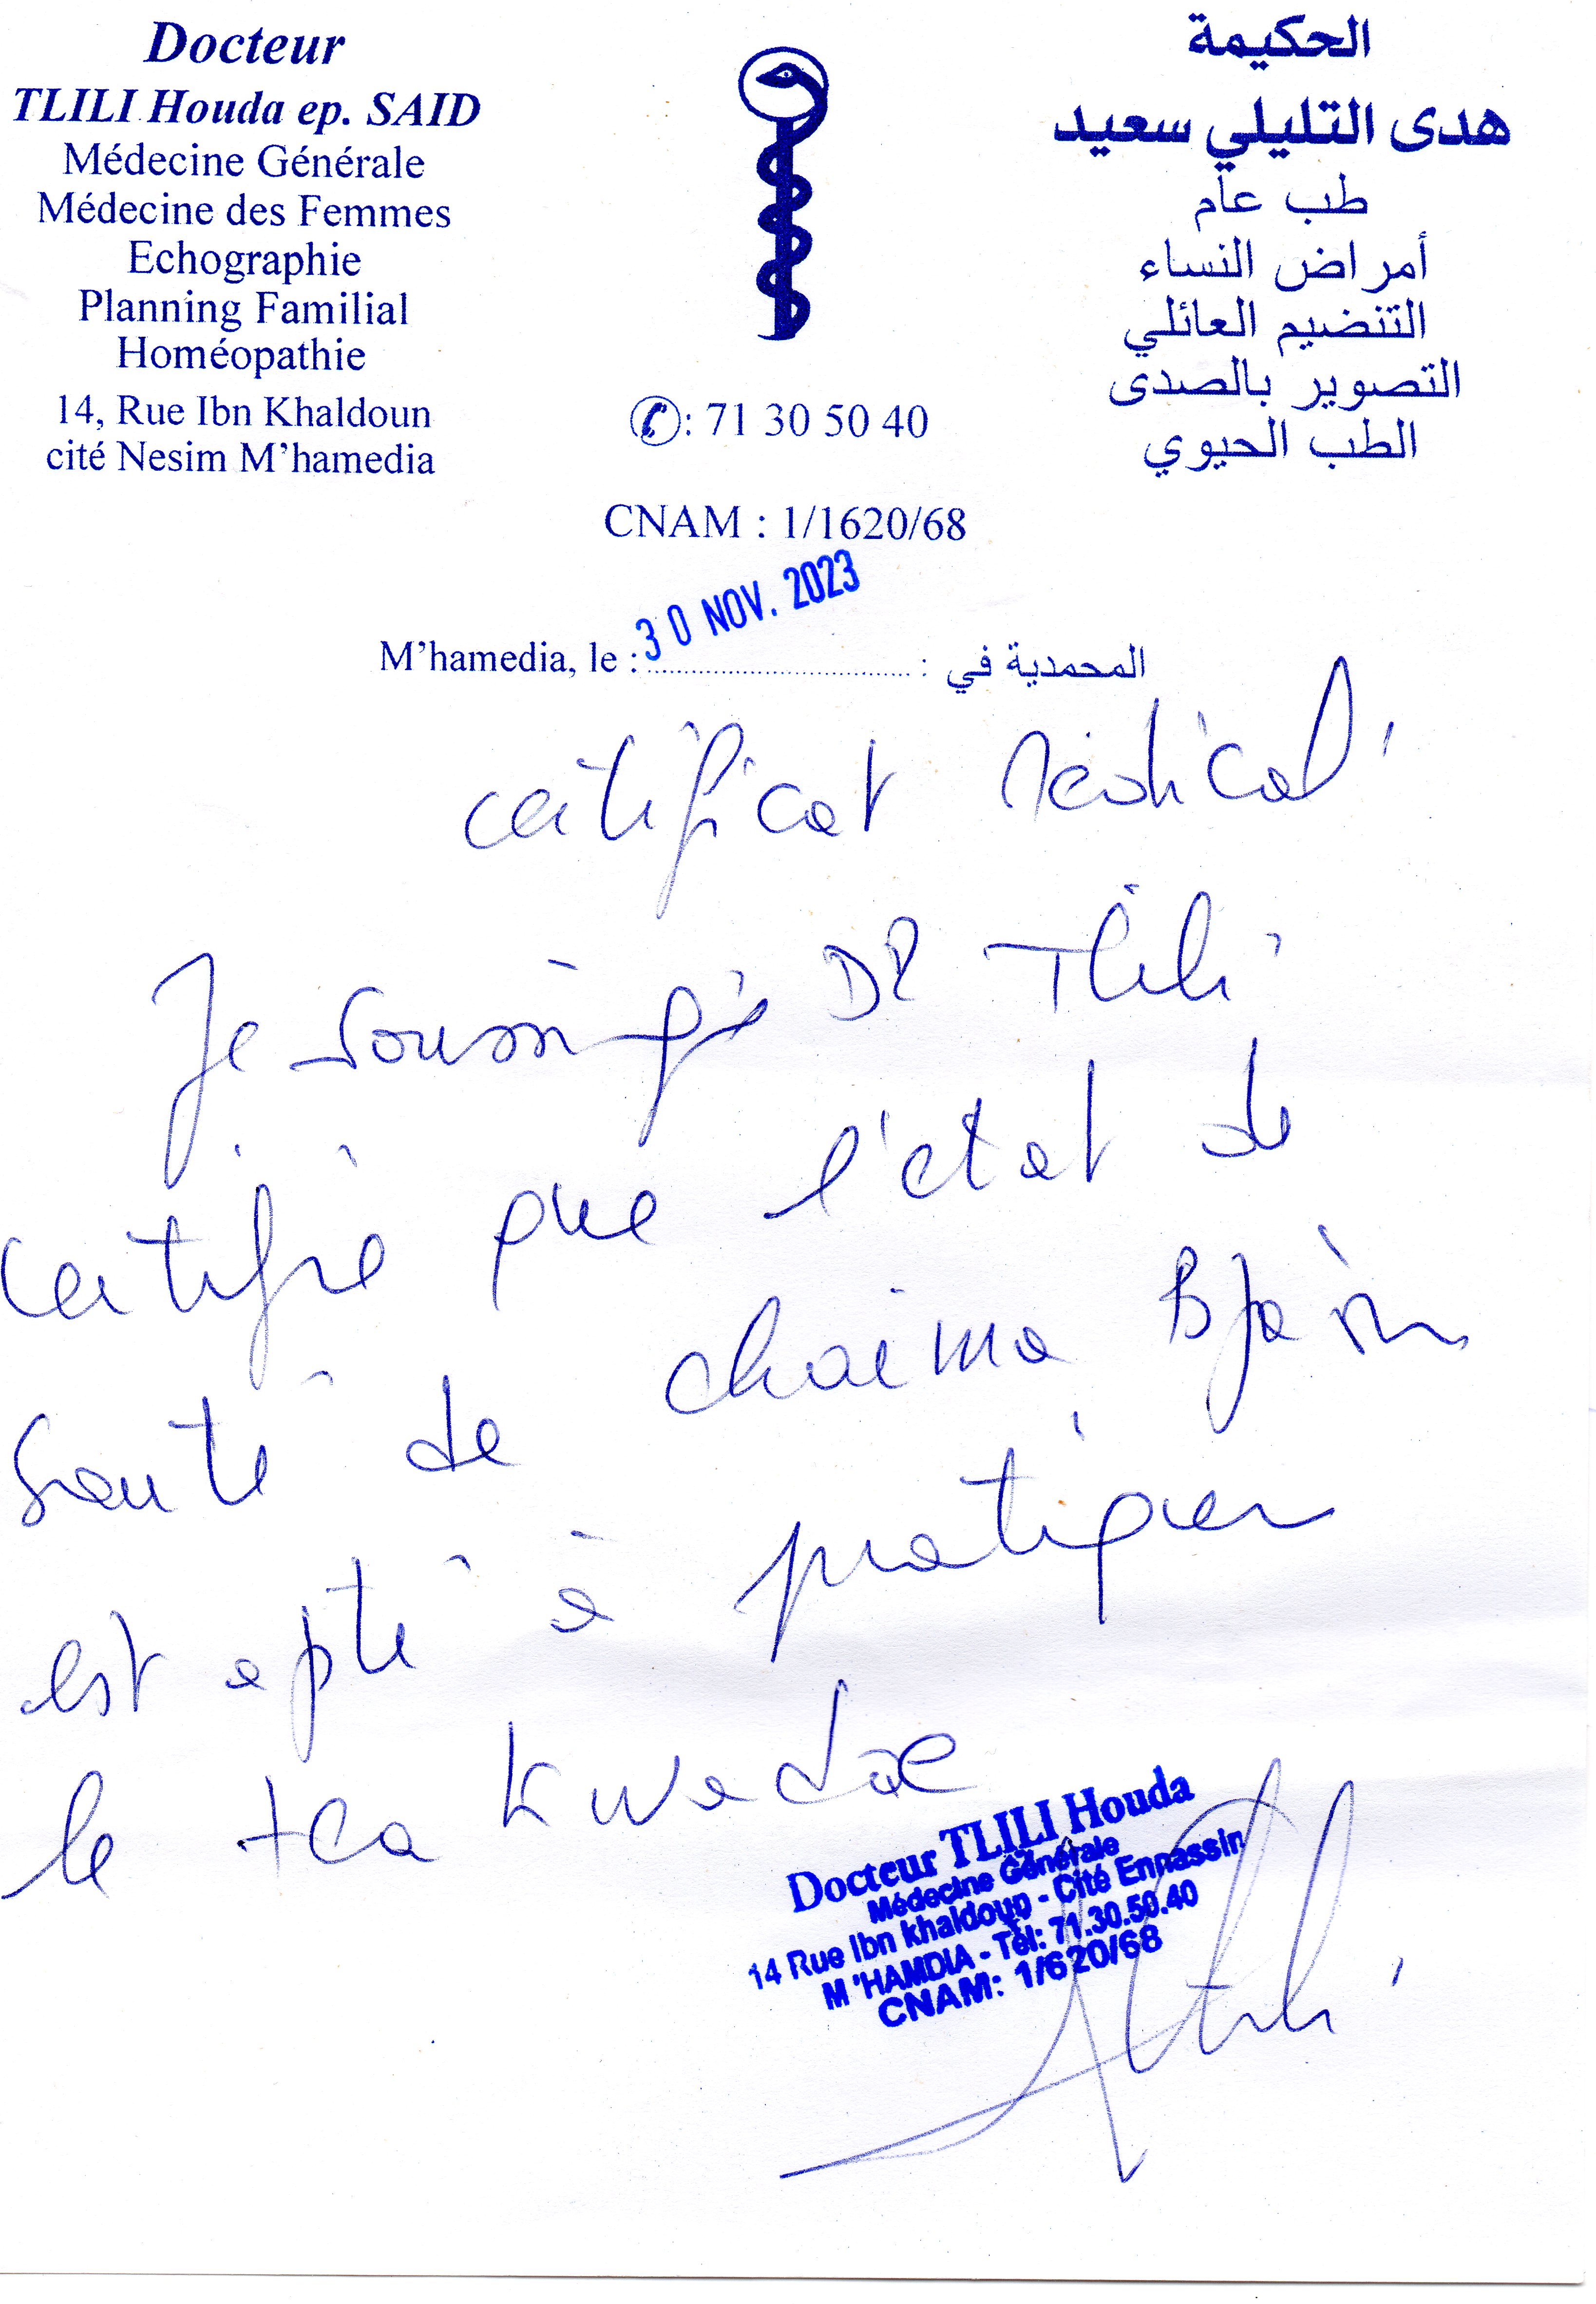 Docteur
TLILI Houda ep. SAID
Médecine Générale
Médecine des Femmes
Echographie
Planning Familial
Homéopathie
14, Rue Ibn Khaldoun
cité Nesim M'hamedia
الحكيمة
هدى التليلي سعيد
طب عام
أمراض النساء
التنضيم العائلي
التصوير بالصدى
الطب الحيوي
✆: 71 30 50 40
CNAM : 1/1620/68
30 NOV. 2023
M'hamedia, le : : المحمدية في
certificat Médical
Je soussigné DR Tlili
certifie que l'etat de
santé de chaima
est apte à pratiquer
le tea kwadoe
Docteur TLILI Houda
Médecine Générale
14 Rue Ibn khaldoun - Cité Ennassin
M 'HAMDIA - Tél: 71.30.50.40
CNAM: 1/620/68